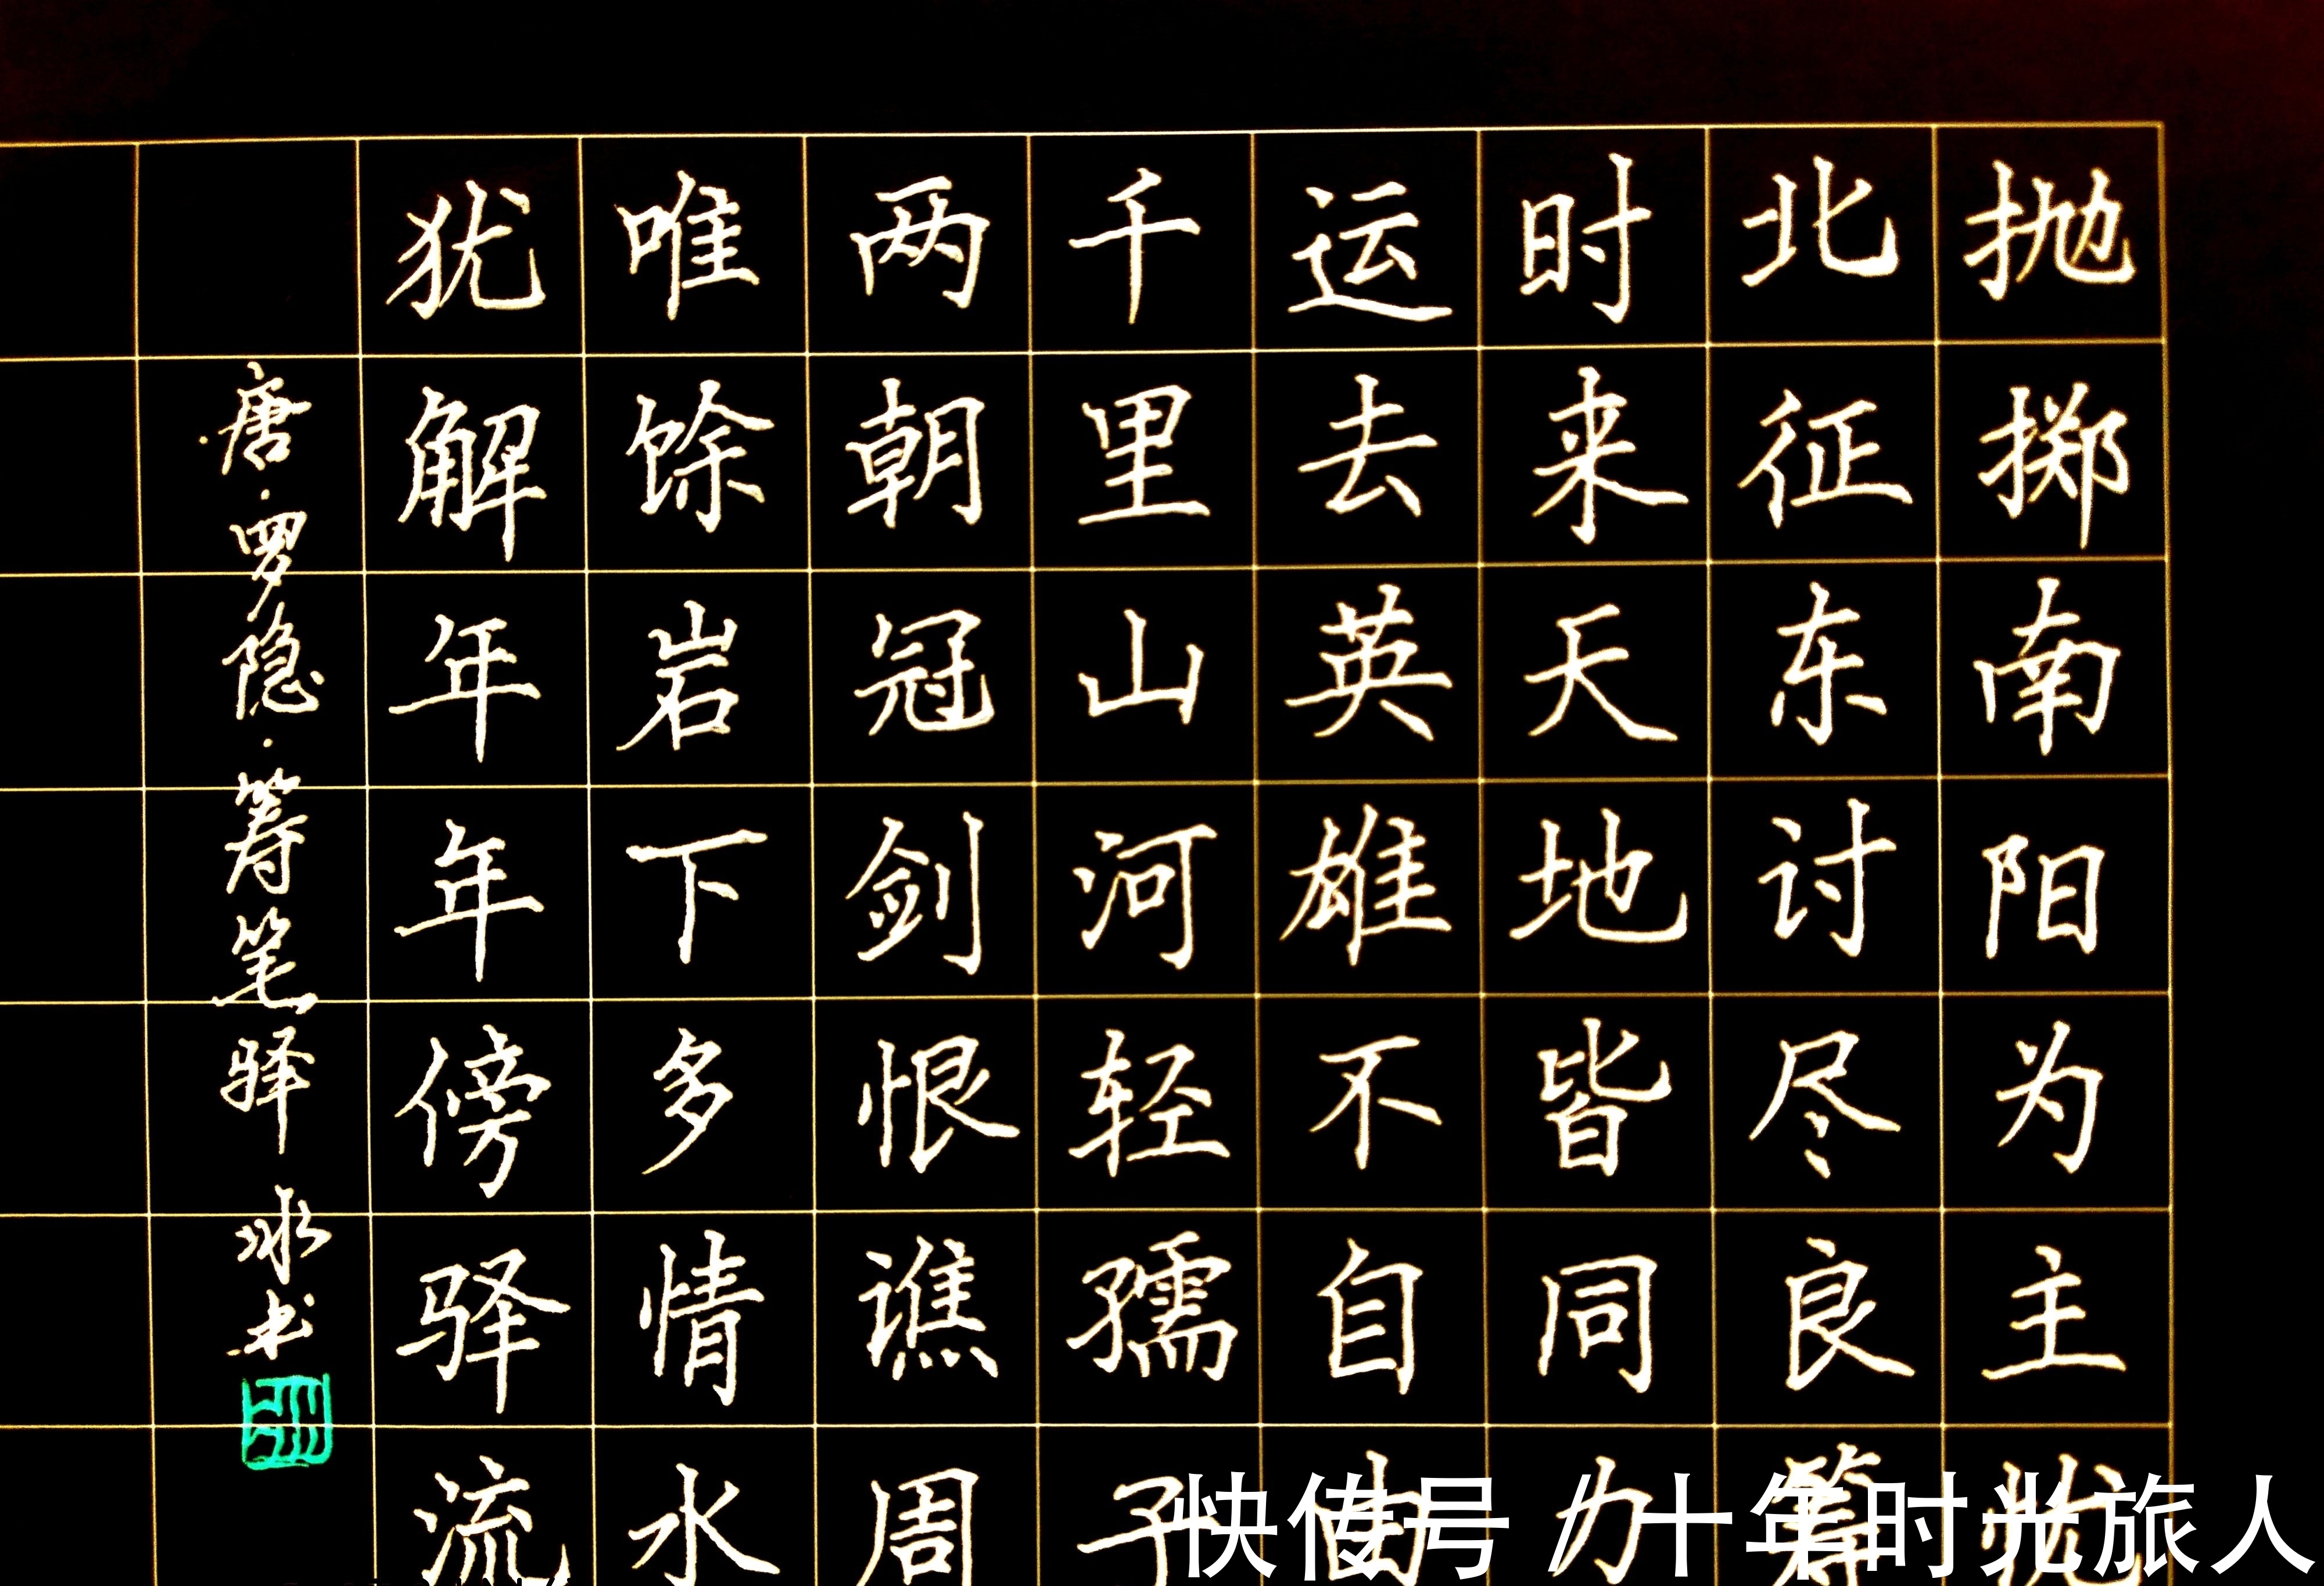 抛掷南阳为主忧
北征东讨尽良筹
时来天地皆同力
运去英雄不自由
千里山河轻孺子
两朝冠剑恨谯周
唯馀岩下多情水
犹解年年傍驿流
唐·罗隐·筹笔驿 冰书
快传号 / 十年时光旅人